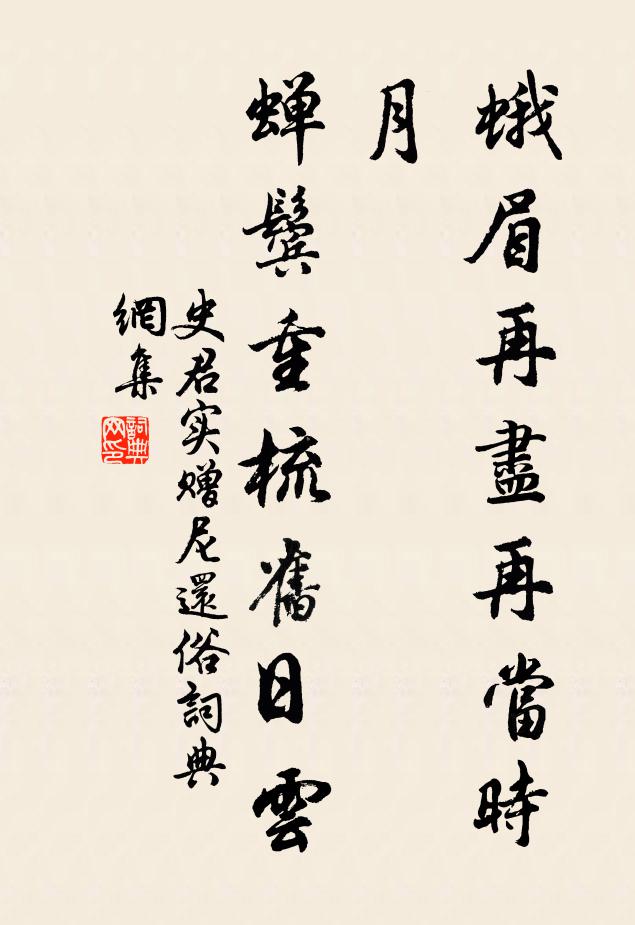 蛾眉再盡再當時
月
蝉鬢重梳舊日雲
史君实赠尼還俗詞典
網集
詞典
网印